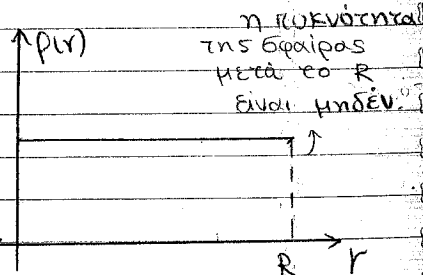 η πυκνότητα
της σφαίρας
μετά το R
είναι μηδέν.
ρ(r)
R
r